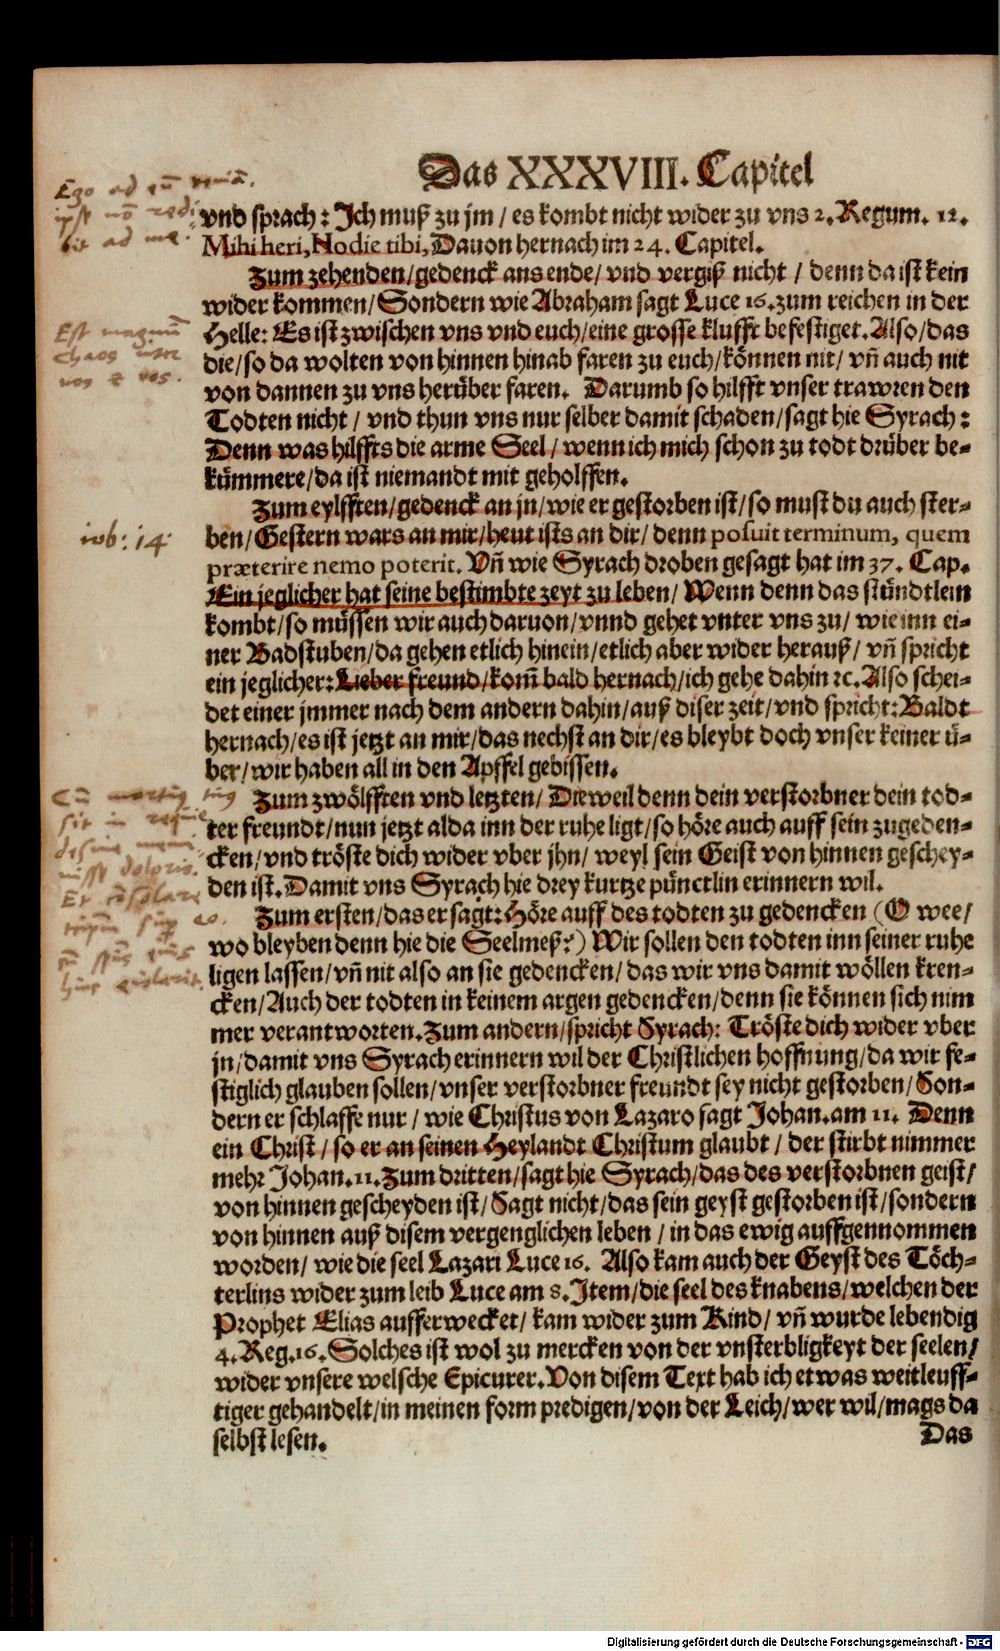 Das XXXVIII. Capitel
vnd sprach: Ich muß zu jm / es kombt nicht wider zu vns 2. Regum. 12.
Mihi heri, Hodie tibi, Dauon hernach im 24. Capitel.
Zum zehenden/gedenck ans ende/ vnd vergiß nicht / denn da ist kein
wider kommen/ Sondern wie Abraham sagt Luce 16. zum reichen in der
Helle: Es ist zwischen vns vnd euch/eine grosse klufft befestiget. Also/das
die/so da wolten von hinnen hinab faren zu euch/können nit/ vñ auch nit
von dannen zu vns herüber faren. Darumb so hilfft vnser trawren den
Todten nicht / vnd thun vns nur selber damit schaden/sagt hie Syrach:
Denn was hilffts die arme Seel/ wenn ich mich schon zu todt drüber be-
kümmere/da ist niemandt mit geholffen.
Zum eylfften/gedenck an jn/wie er gestorben ist/so must du auch ster-
ben/Gestern wars an mir/heut ists an dir/ denn posuit terminum, quem
præterire nemo poterit. Vñ wie Syrach droben gesagt hat im 37. Cap.
Ein jeglicher hat seine bestimbte zeyt zu leben/ Wenn denn das stündtlein
kombt/so müssen wir auch daruon/vnnd gehet vnter vns zu/ wie inn ei-
ner Badstuben/da gehen etlich hinein/etlich aber wider herauß/ vñ spricht
ein jeglicher: Lieber freund/kom̃ bald hernach/ich gehe dahin ꝛc. Also schei-
det einer jmmer nach dem andern dahin/auß diser zeit/vnd spricht: Baldt
hernach/es ist jetzt an mir/das nechst an dir/es bleybt doch vnser keiner ü-
ber/wir haben all in den Apffel gebissen.
Zum zwölfften vnd letzten/ Dieweil denn dein verstorbner dein tod-
ter freundt/nun jetzt alda inn der ruhe ligt/so höre auch auff sein zugeden-
cken/vnd tröste dich wider vber jhn/ weyl sein Geist von hinnen geschey-
den ist. Damit vns Syrach hie drey kurtze pünctlin erinnern wil.
Zum ersten/das er sagt: Höre auff des todten zu gedencken (O wee/
wo bleyben denn hie die Seelmeß?) Wir sollen den todten inn seiner ruhe
ligen lassen/vñ nit also an sie gedencken/das wir vns damit wöllen kren-
cken/Auch der todten in keinem argen gedencken/denn sie können sich nim
mer verantworten. Zum andern/spricht Syrach: Tröste dich wider vber
jn/damit vns Syrach erinnern wil der Christlichen hoffnung/da wir fe-
stiglich glauben sollen/vnser verstorbner freundt sey nicht gestorben/Son-
dern er schlaffe nur / wie Christus von Lazaro sagt Johan. am 11. Denn
ein Christ/ so er an seinen Heylandt Christum glaubt / der stirbt nimmer
mehr Johan. 11. Zum dritten/sagt hie Syrach/das des verstorbnen geist/
von hinnen gescheyden ist/Sagt nicht/das sein geyst gestorben ist/sondern
von hinnen auß disem vergenglichen leben / in das ewig auffgennommen
worden/ wie die seel Lazari Luce 16. Also kam auch der Geyst des Töch-
terlins wider zum leib Luce am 8. Item/die seel des knabens/welchen der
Prophet Elias aufferwecket/ kam wider zum Kind/ vñ wurde lebendig
4. Reg. 16. Solches ist wol zu mercken von der vnsterbligkeyt der seelen/
wider vnsere welsche Epicurer. Von disem Text hab ich etwas weitleuff-
tiger gehandelt/in meinen form predigen/von der Leich/wer wil/mags da
selbst lesen.
Das
Ego ad eũ veniã.
ipse nõ redi
bit ad me.
Est magnũ
chaos inter
nos & vos.
iob: 14
Cũ mortuus
sit in requie
desine
doloris.
Et cõsolare
eo.
Digitalisierung gefördert durch die Deutsche Forschungsgemeinschaft - DFG